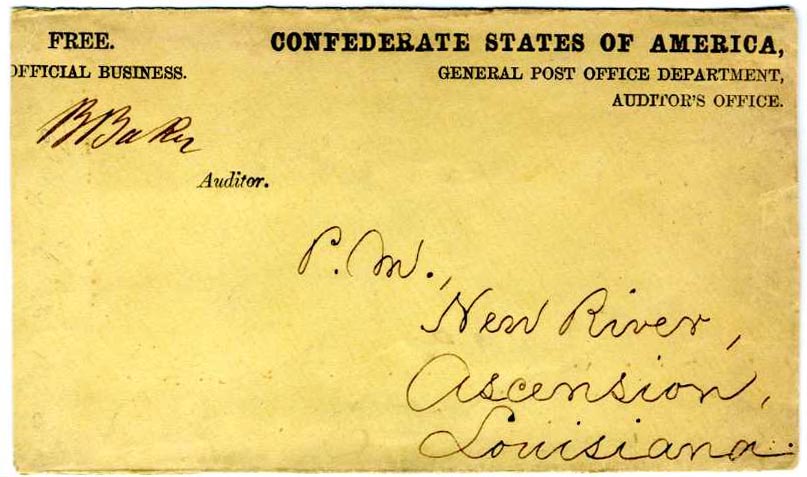 FREE.
OFFICIAL BUSINESS.
CONFEDERATE STATES OF AMERICA,
GENERAL POST OFFICE DEPARTMENT,
AUDITOR'S OFFICE.
B Baker
Auditor.
P. M.,
New River,
Ascension,
Louisiana.